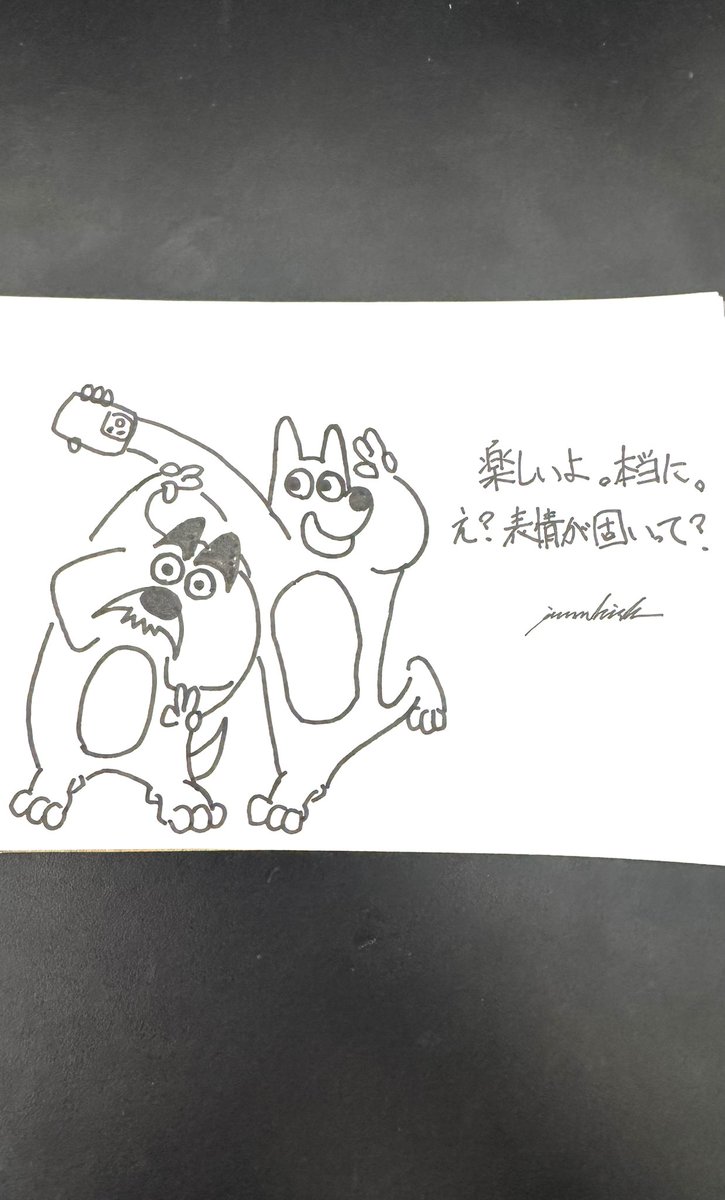 楽しいよ。本当に。
え？表情が固いって？